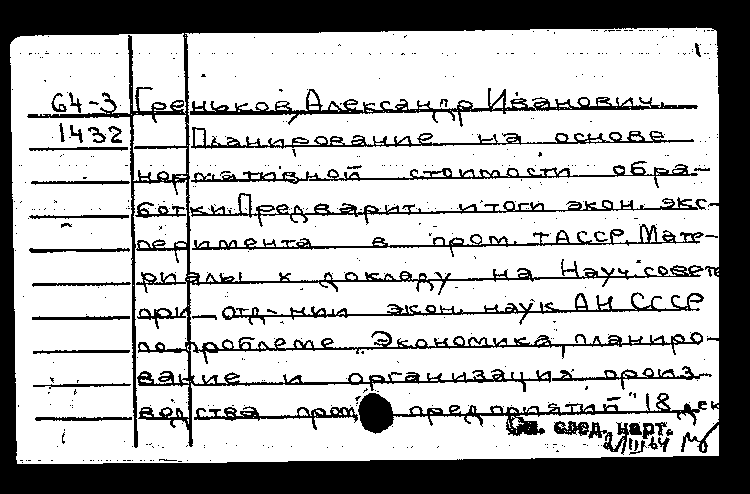 1
64-3 Греньков, Александр Иванович.
1432 Планирование на основе
нормативной стоимости обра-
ботки. Предварит. итоги экон. экс-
перимента в пром. ТАССР. Мате-
риалы к докладу на Науч. совете
при отд-нии экон. наук АН СССР
по проблеме "Экономика, планиро-
вание и организация произ-
водства пром. предприятий" 18 дек
См. след. карт.
2/III 64